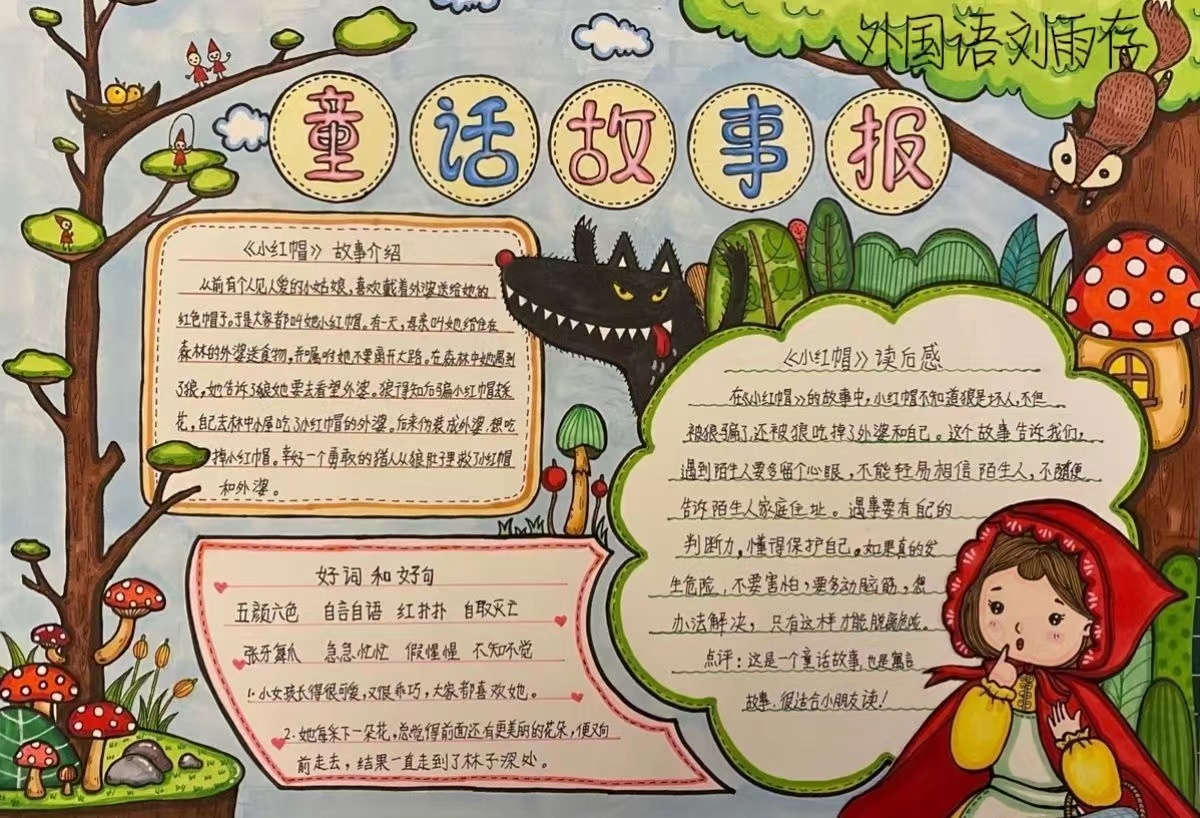 外国语刘雨存
童话故事报
《小红帽》故事介绍
从前有个人见人爱的小姑娘,喜欢戴着外婆送给她的
红色帽子。于是大家都叫她小红帽。有一天,母亲叫她给住在
森林的外婆送食物,并嘱咐她不要离开大路。在森林中她遇到
了狼,她告诉了狼她要去看望外婆。狼得知后骗小红帽去采
花,自己去林中小屋吃了小红帽的外婆。后来伪装成外婆,想吃
掉小红帽。幸好一个勇敢的猎人从狼肚子里救了小红帽
和外婆。
好词和好句
五颜六色 自言自语 红扑扑 自取灭亡
张牙舞爪 急急忙忙 假惺惺 不知不觉
1.小女孩长得很可爱,又很乖巧,大家都喜欢她。
2.她每采下一朵花,总觉得前面还有更美丽的花朵,便又向
前走去,结果一直走到了林子深处。
《小红帽》读后感
在《小红帽》的故事中,小红帽不知道狼是坏人,不但
被狼骗了,还被狼吃掉了外婆和自己。这个故事告诉我们,
遇到陌生人要多留个心眼,不能轻易相信陌生人,不随便
告诉陌生人家庭住址。遇事要有自己的
判断力,懂得保护自己。如果真的发
生危险,不要害怕,要多动脑筋,想
办法解决,只有这样才能脱离危险。
点评:这是一个童话故事,也是寓言
故事,很适合小朋友读!